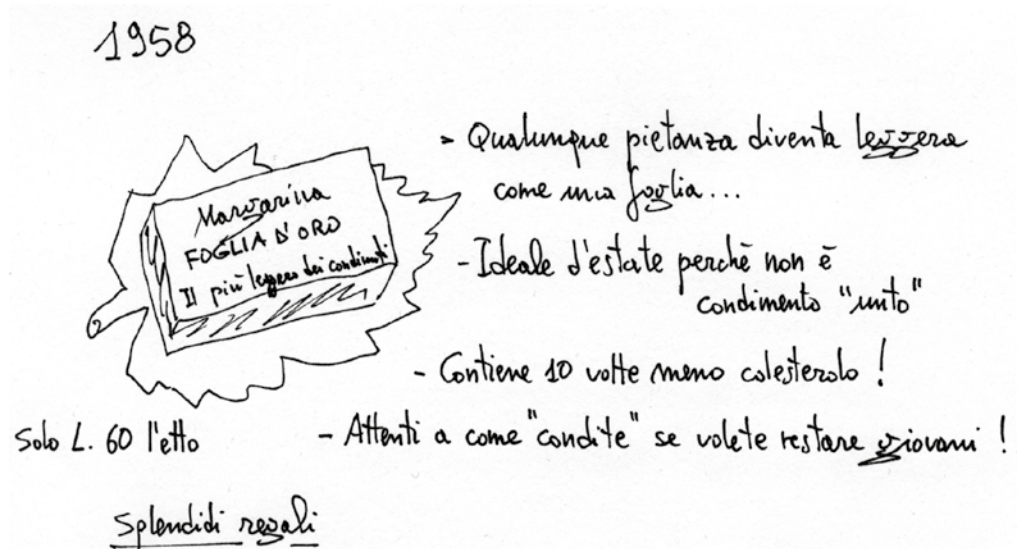 1958
Margarina
FOGLIA D'ORO
Il più leggero dei condimenti
- Qualunque pietanza diventa leggera
come una foglia...
- Ideale d'estate perchè non è
condimento "unto"
- Contiene 10 volte meno colesterolo !
Solo L. 60 l'etto
- Attenti a come "condite" se volete restare giovani !
Splendidi regali